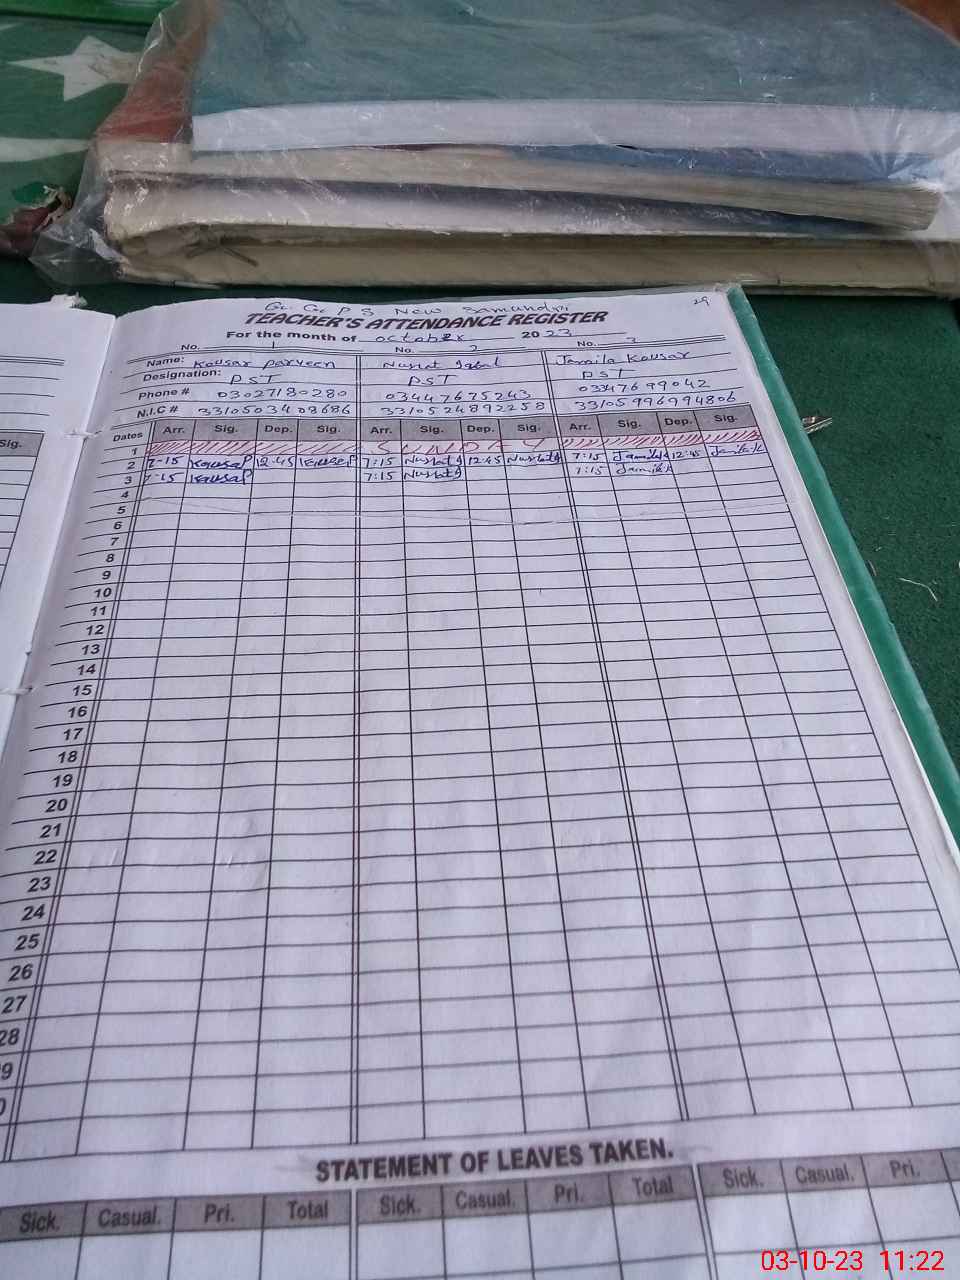 G. G. P S New Samundri
29
TEACHER'S ATTENDANCE REGISTER
For the month of October 2023
No. 1 No. 2 No. 3
Name: Kousar Parveen Nusrat Iqbal Jamila Kousar
Designation: PST PST PST
Phone # 03027180280 03447675243 03347699042
N.I.C # 3310503408686 3310524892258 331059969994806
Sig. Dates Arr. Sig. Dep. Sig. Arr. Sig. Dep. Sig. Arr. Sig. Dep. Sig.
1 SUNDEY
2 7-15 KousaP 12:45 KousaP 7:15 Nusrat 12:45 Nusrat 7:15 Jamila K 12:45 Jamila K
3 7-15 KousaP 7:15 Nusrat 7:15 Jamila K
4
5
6
7
8
9
10
11
12
13
14
15
16
17
18
19
20
21
22
23
24
25
26
27
28
9
0
STATEMENT OF LEAVES TAKEN.
Sick. Casual. Pri. Total Sick. Casual. Pri. Total Sick. Casual. Pri.
03-10-23 11:22